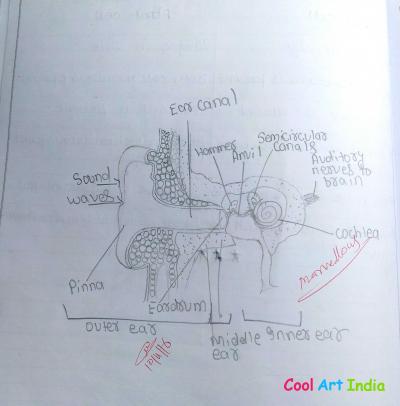 Ear canal
Hammer
Anvil
Semicircular
canals
Auditory
nerves to
brain
Sound
waves
Cochlea
Pinna
Eardrum
marvellous
outer ear
middle
ear
Inner ear
Cool Art India